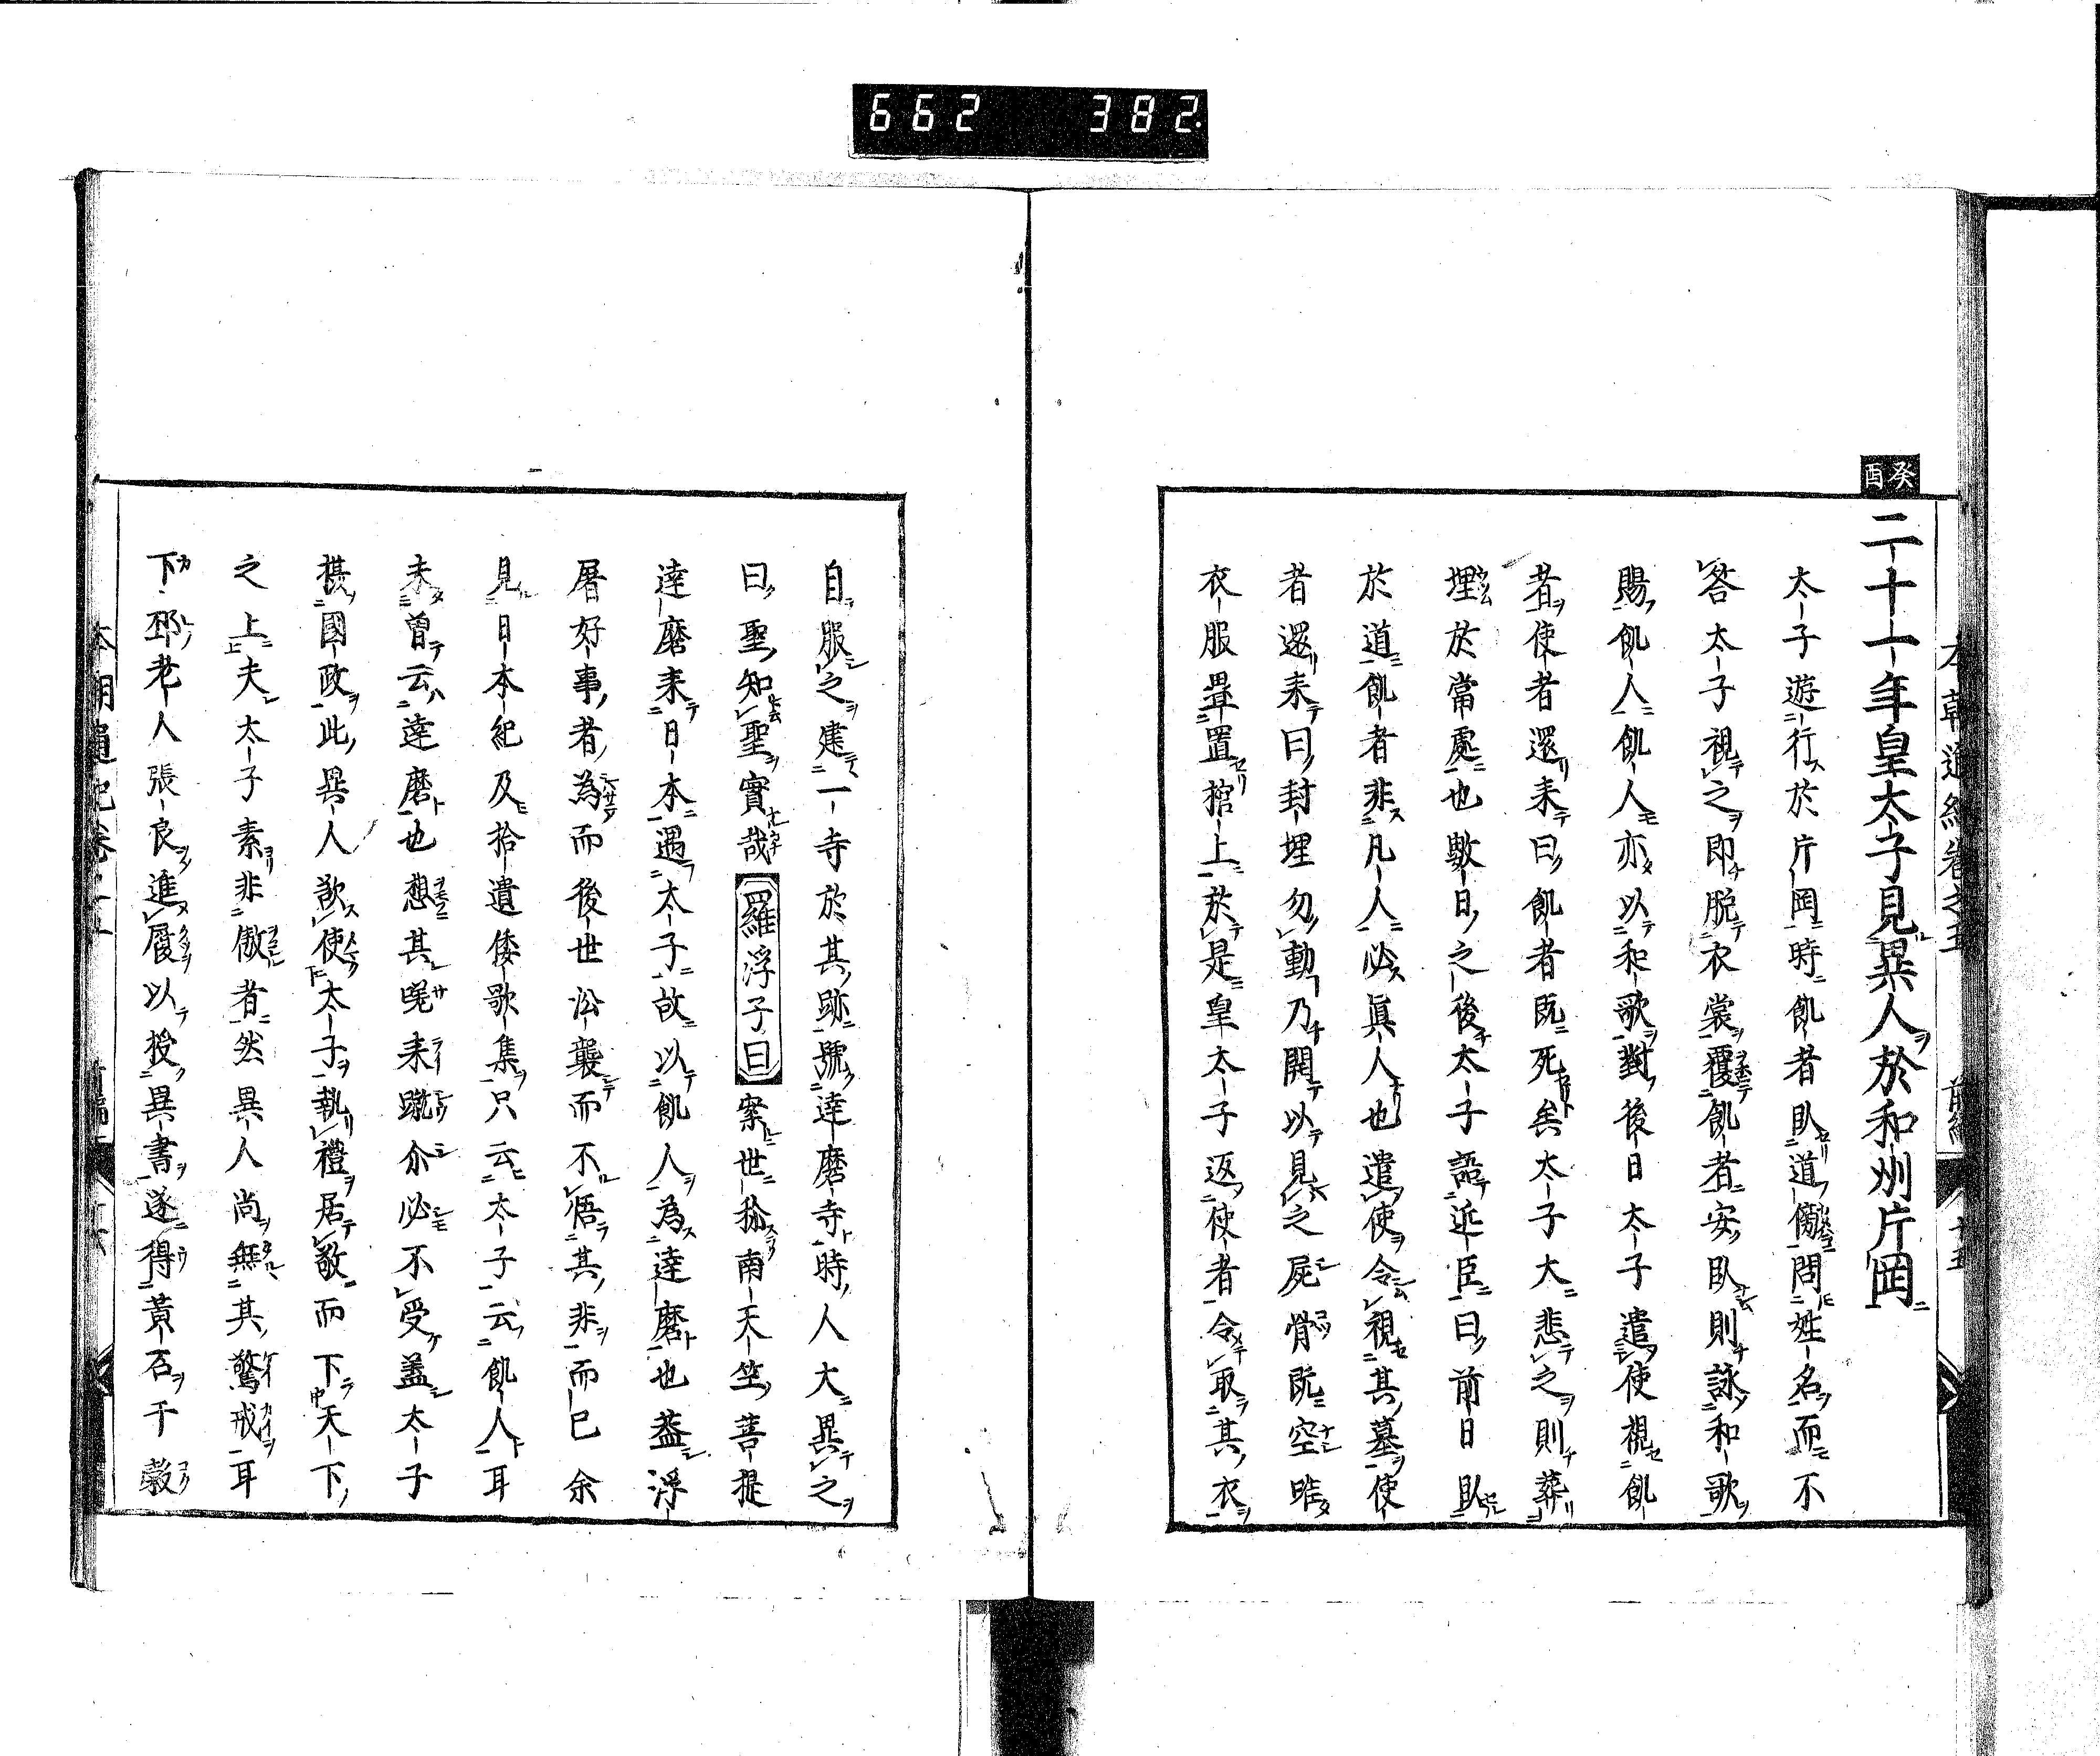 662 382.
本朝通紀卷之五 前編 廿五
癸酉
二十一年皇太子見異人於和州片岡
太子遊行於片岡時飢者臥道傍問姓名而不
答太子視之即脱衣裳覆飢者安臥則詠和歌
賜飢人飢人亦以和歌對後日太子遣使視飢
者使者還来曰飢者既死矣太子大悲之則葬
埋於當處也數日之後太子語近臣曰前日臥
於道飢者非凡人必眞人也遣使令視其墓使
者還来曰封埋勿動乃開以見之屍骨既空唯
衣服畳置棺上於是皇太子返使者令取其衣
自服之建一寺於其跡號達磨寺時人大異之
曰聖知聖實哉羅浮子曰案世称南天竺菩提
達磨来日本遇太子故以飢人為達磨也蓋浮
屠好事者為而後世沿襲而不悟其非而已余
見日本紀及拾遺倭歌集只云太子云飢人耳
未曽云達磨也想其嗟来蹴尒必不受蓋太子
摂國政此異人欲使太子執禮居敬而下天下
之上夫太子素非傲者然異人尚無其驚戒耳
下邳老人張良進履以授異書遂得黄石于穀
本朝通紀卷之五 前編 廿六